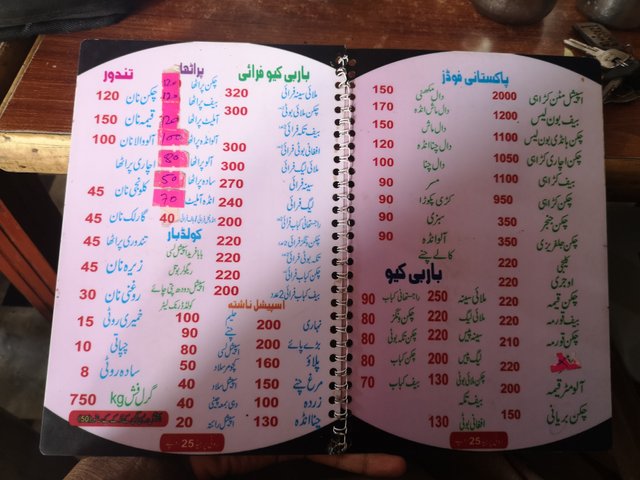 پاکستانی فوڈز
اسپیشل مٹن کڑاہی 2000
بیف بون لیس 1200
چکن ہانڈی بون لیس 1100
چکن اچاری کڑاہی 1050
بیف کڑاہی 1100
چکن کڑاہی 950
چکن جنجر 350
چکن جلفریزی 350
کلیجی 220
اوجری 220
چکن قیمہ 220
بیف قورمہ 220
چکن قورمہ 210
آلو مٹر قیمہ 200
چکن بریانی 150
دال مکھنی 150
دال ماش انڈہ 170
دال ماش 150
دال چنا انڈہ 120
دال چنا 100
مسر 90
کڑی پکوڑا 90
سبزی 90
آلو انڈہ 90
کالے چنے
باربی کیو
ملائی سینہ 250
ملائی لیگ 220
سینہ پیس 220
لیگ پیس 200
چکن ملائی بوٹی 130
بیف تکہ
افغانی بوٹی 130
راجستھانی کباب 90
چکن ونگز 80
چکن تکہ بوٹی 80
چکن کباب 80
بیف کباب 70
باربی کیو فرائی
ملائی سینہ فرائی 320
چکن ملائی بوٹی فرائی 300
بیف تکہ فرائی
افغانی بوٹی فرائی 300
ملائی لیگ فرائی 300
سینہ فرائی 270
لیگ فرائی 240
راجستھانی کباب فرائی 200
چکن ونگز فرائی 220
تکہ بوٹی فرائی 220
چکن کباب فرائی 220
بیف کباب فرائی 2 عدد 200
اسپیشل ناشتہ
نہاری 200
بڑے پائے 200
پلاؤ 160
مرغ چنے 150
زردہ 100
چنا انڈہ 130
پراٹھا
چکن پراٹھا
بیف پراٹھا
آملیٹ پراٹھا 120
آلو انڈہ پراٹھا 100
آلو پراٹھا 80
سادہ پراٹھا 50
انڈہ آملیٹ 70
40
کولڈ بار
اسپیشل دودھ پتی چائے
حلیم 100
چنے 90
اسپیشل لسی 80
کچومر سلاد 50
اسپیشل سلاد 40
دہی 40
اسپیشل رائتہ 20
تندور
چکن نان 120
قیمہ نان 150
آلو والا نان 100
اچاری پراٹھا
کلونجی نان 45
گارلک نان
تندوری پراٹھا 45
زیرہ نان 45
روغنی نان 30
خمیری روٹی 15
چپاتی 10
سادہ روٹی 8
گرل فش kg 750
25
25